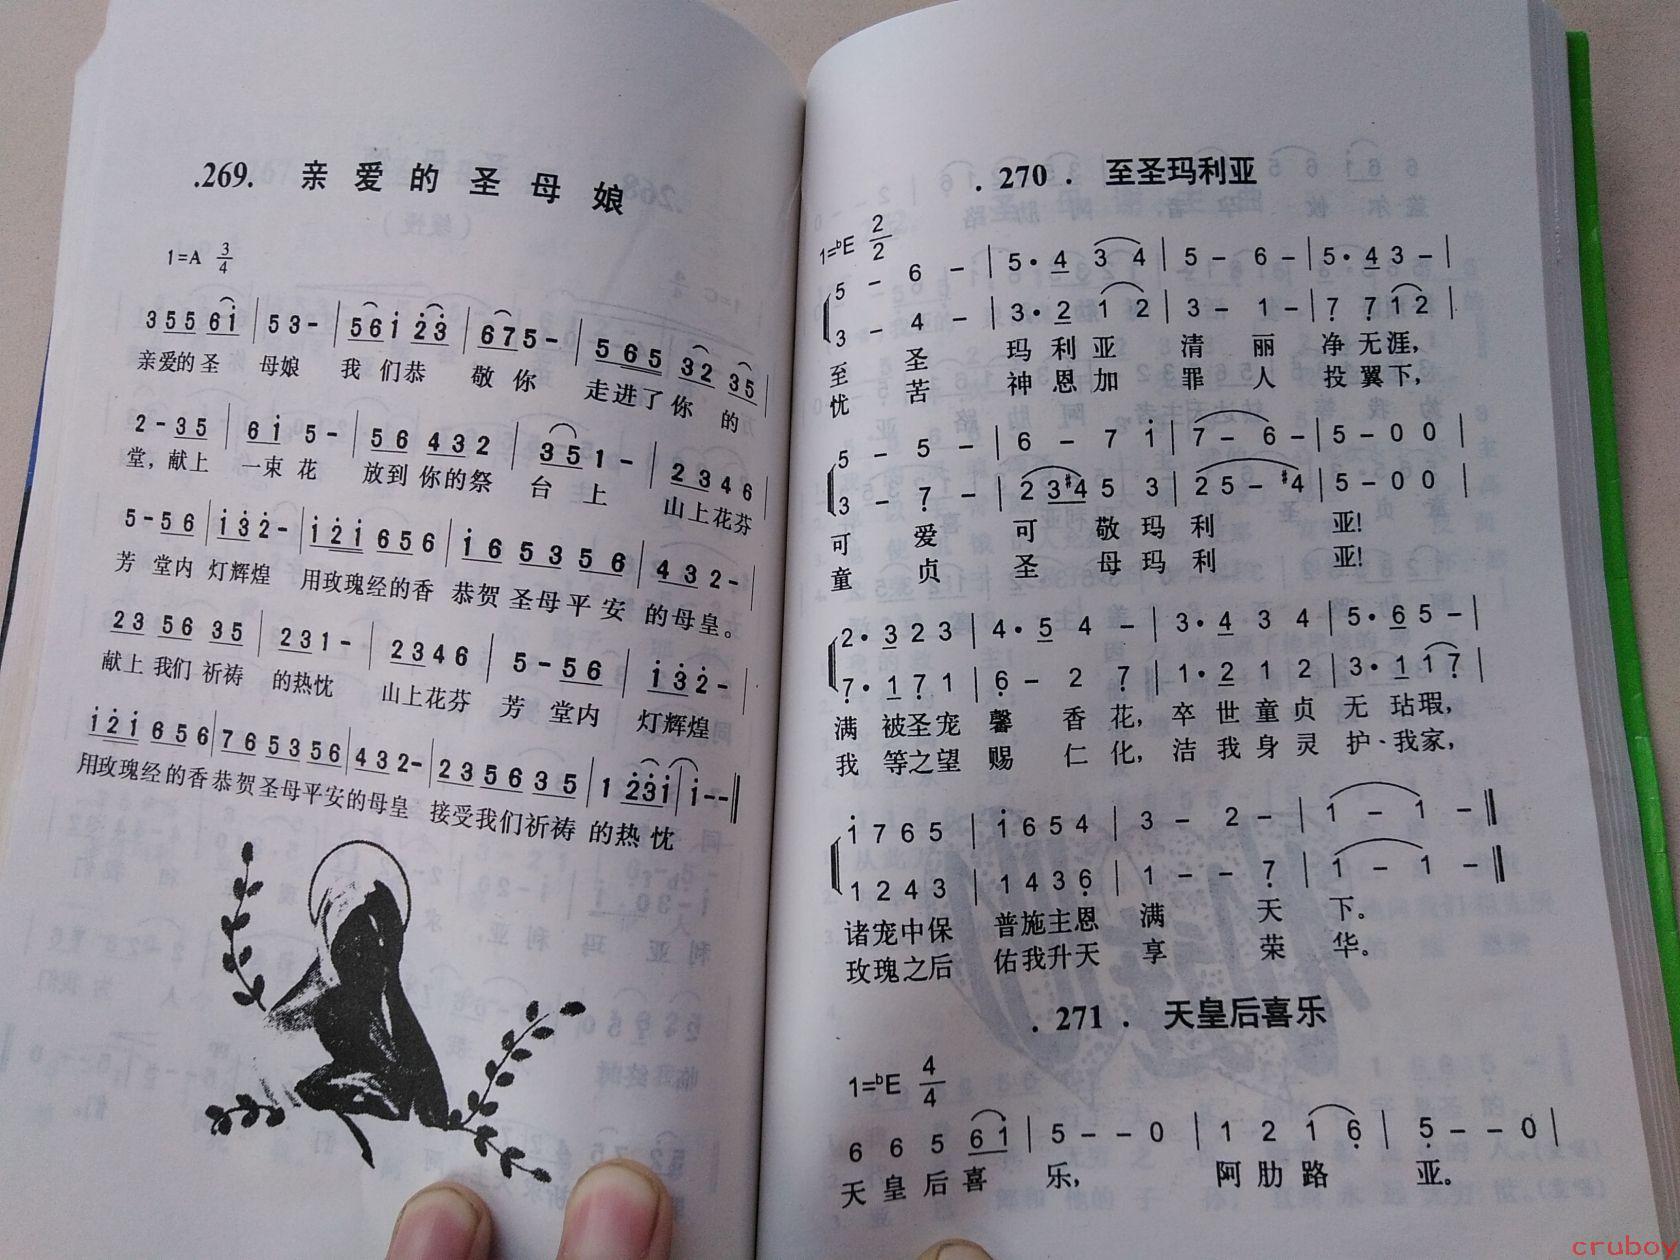 .269. 亲爱的圣母娘
1=A 3/4
3 5 5 6 i | 5 3 - | 5 6 i 2̇ 3̇ | 6 7 5 - | 5 6 5 3 2 3 5 |
亲爱的圣 母娘 我们恭 敬你 走进了你的
2 - 3 5 | 6 i 5 - | 5 6 4 3 2 | 3 5 1 - | 2 3 4 6 |
堂,献上 一束花 放到你的祭 台上 山上花芬
5 - 5 6 | i 3̇ 2̇ - | i 2̇ i 6 5 6 | i 6 5 3 5 6 | 4 3 2 - |
芳 堂内 灯辉煌 用玫瑰经的香 恭贺圣母平安 的母皇。
2 3 5 6 3 5 | 2 3 1 - | 2 3 4 6 | 5 - 5 6 | i 3̇ 2̇ - |
献上我们祈祷 的热忱 山上花芬 芳 堂内 灯辉煌
i 2̇ i 6 5 6 | 7 6 5 3 5 6 | 4 3 2 - | 2 3 5 6 3 5 | 1 2̇ 3̇ i | i - - ‖
用玫瑰经的香恭贺圣母平安的母皇 接受我们祈祷 的热忱
. 270 . 至圣玛利亚
1=ᵇE 2/2
5 - 6 - | 5· 4 3 4 | 5 - 6 - | 5· 4 3 - |
3 - 4 - | 3· 2 1 2 | 3 - 1 - | 7̣ 7̣ 1 2 |
至 圣 玛利亚 清 丽 净无涯,
忧 苦 神恩加 罪 人 投翼下,
5 - 5 - | 6 - 7 i | 7 - 6 - | 5 - 0 0 |
3 - 7̣ - | 2 3 #4 5 3 | 2 5 - #4 | 5 - 0 0 |
可 爱 可 敬玛利 亚!
童 贞 圣 母玛利 亚!
2· 3 2 3 | 4· 5 4 - | 3· 4 3 4 | 5· 6 5 - |
7̣· 1 7̣ 1 | 6̣ - 2 7̣ | 1· 2 1 2 | 3· 1 1 7̣ |
满 被圣宠 馨 香花,卒世童贞 无 玷瑕,
我 等之望 赐 仁化,洁我身灵 护·我家,
i 7 6 5 | i 6 5 4 | 3 - 2 - | 1 - 1 - ‖
1 2 4 3 | 1 4 3 6̣ | 1 - - 7̣ | 1 - 1 - ‖
诸宠中保 普施主恩 满 天 下。
玫瑰之后 佑我升天 享 荣 华。
. 271 . 天皇后喜乐
1=ᵇE 4/4
6 6 5 6 i | 5 - - 0 | 1 2 1 6̣ | 5̣ - - 0 |
天皇后喜 乐, 阿肋路 亚。
cruboy